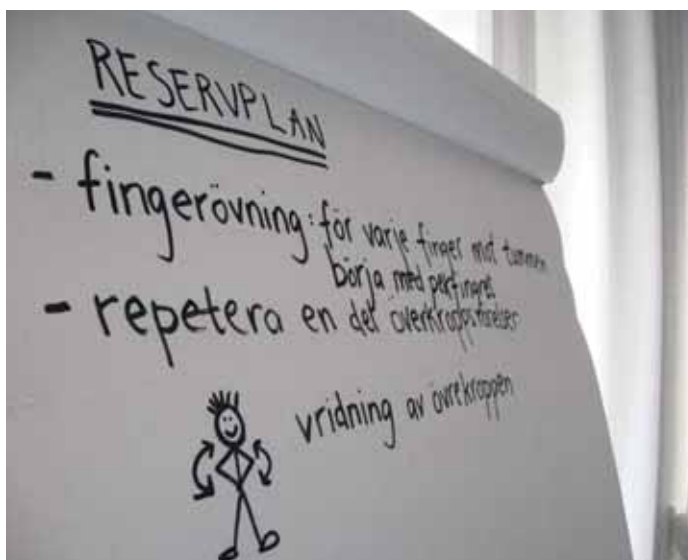 RESERVPLAN
- fingerövning: för varje finger mot tummen
börja med pekfingret
- repetera en del överkroppsrörelser
vridning av övrekroppen